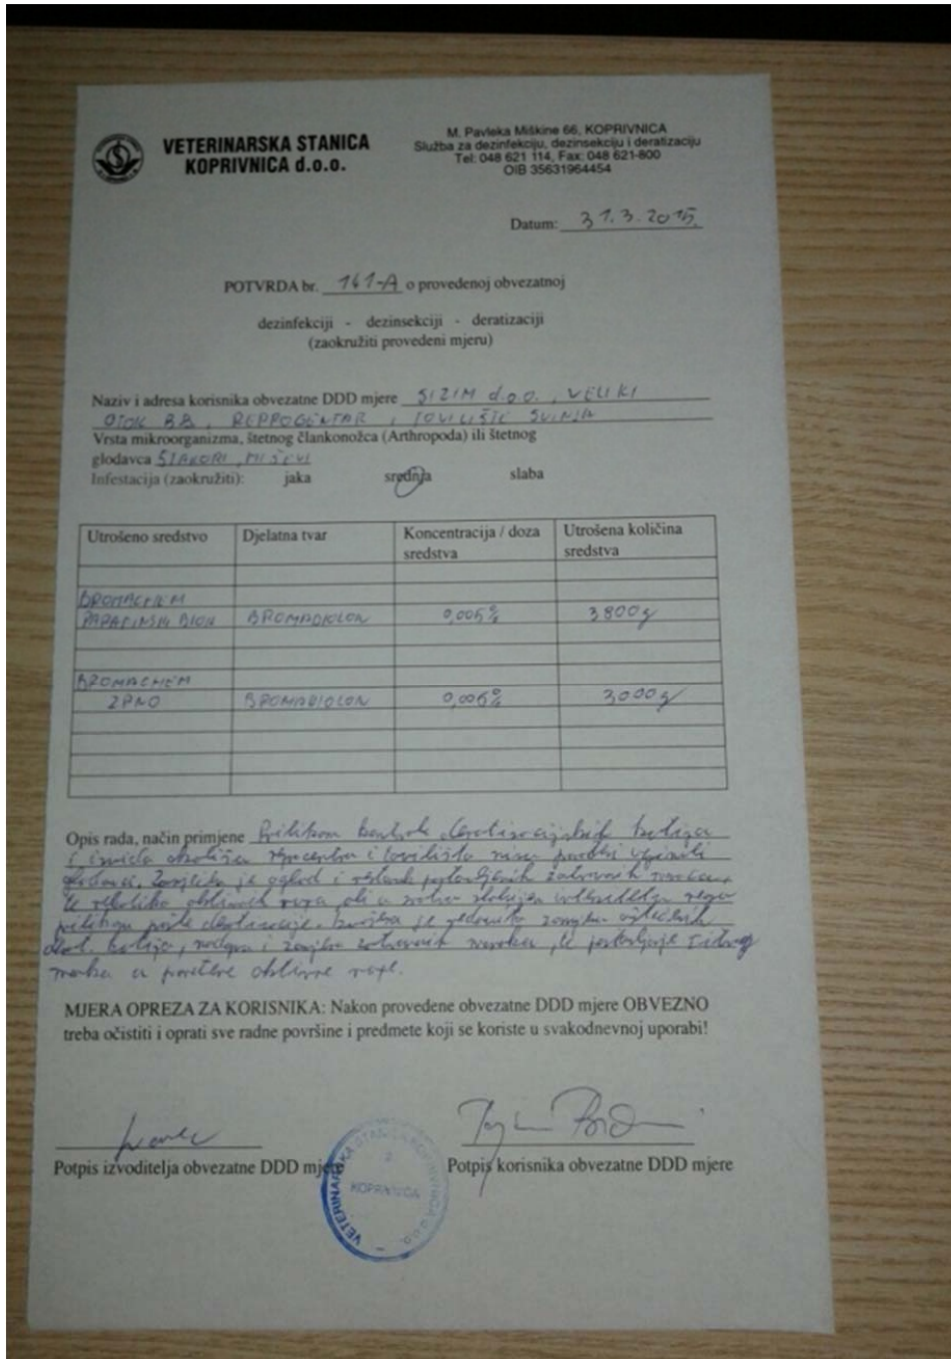 VETERINARSKA STANICA
KOPRIVNICA d.o.o.
M. Pavleka Miškine 66, KOPRIVNICA
Služba za dezinfekciju, dezinsekciju i deratizaciju
Tel: 048 621 114, Fax: 048 621-800
OIB 35631964454
Datum: 31.3.2015.
POTVRDA br. 161-A o provedenoj obvezatnoj
dezinfekciji - dezinsekciji - deratizaciji
(zaokružiti provedeni mjeru)
Naziv i adresa korisnika obvezatne DDD mjere SIZIM d.o.o., VELIKI
OTOK BB, REPROCENTAR, TOVILIŠTE SVINJA
Vrsta mikroorganizma, štetnog člankonožca (Arthropoda) ili štetnog
glodavca ŠTAKORI, MIŠEVI
Infestacija (zaokružiti): jaka srednja slaba
Utrošeno sredstvo Djelatna tvar Koncentracija / doza sredstva Utrošena količina sredstva
BROMACHEM
PARAFINSKI BLOK BROMADIOLON 0,005% 3800g
BROMACHEM
ZRNO BROMADIOLON 0,005% 3000g
Opis rada, način primjene Prilikom kontrole deratizacijskih kutija
i tovilišta nisu
glodavci. je
te nekoliko aktivnih rupa ali u
je zamjena
kutija, i zamjena mamaka, te postavljanje
mamka u aktivne rupe.
MJERA OPREZA ZA KORISNIKA: Nakon provedene obvezatne DDD mjere OBVEZNO
treba očistiti i oprati sve radne površine i predmete koji se koriste u svakodnevnoj uporabi!
Potpis izvoditelja obvezatne DDD mjere
Potpis korisnika obvezatne DDD mjere
VETERINARSKA STANICA KOPRIVNICA d.o.o.
2
KOPRIVNICA